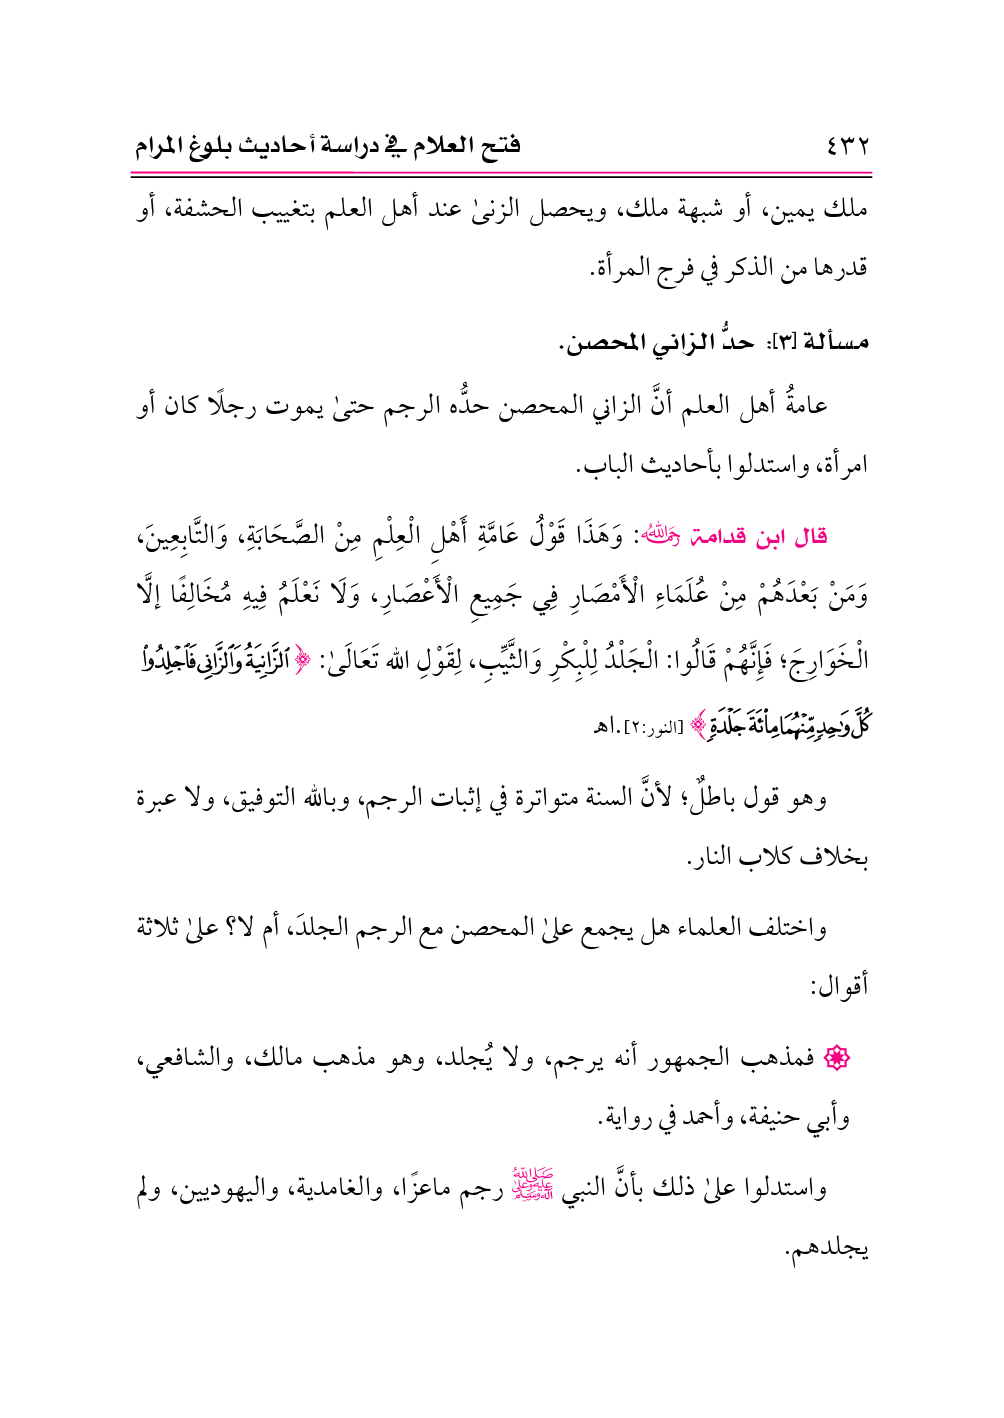 ٤٣٢ فتح العلام في دراسة أحاديث بلوغ المرام
ملك يمين، أو شبهة ملك، ويحصل الزنىٰ عند أهل العلم بتغييب الحشفة، أو
قدرها من الذكر في فرج المرأة.
مسألة [٣]: حدُّ الزاني المحصن.
عامةُ أهل العلم أنَّ الزاني المحصن حدُّه الرجم حتىٰ يموت رجلًا كان أو
امرأة، واستدلوا بأحاديث الباب.
قال ابن قدامة رَحِمَهُ ٱللَّهُ: وَهَذَا قَوْلُ عَامَّةِ أَهْلِ الْعِلْمِ مِنْ الصَّحَابَةِ، وَالتَّابِعِينَ،
وَمَنْ بَعْدَهُمْ مِنْ عُلَمَاءِ الْأَمْصَارِ فِي جَمِيعِ الْأَعْصَارِ، وَلَا نَعْلَمُ فِيهِ مُخَالِفًا إلَّا
الْخَوَارِجَ؛ فَإِنَّهُمْ قَالُوا: الْجَلْدُ لِلْبِكْرِ وَالثَّيِّبِ، لِقَوْلِ الله تَعَالَىٰ: ﴿ٱلزَّانِيَةُ وَٱلزَّانِي فَٱجْلِدُوا۟
كُلَّ وَٰحِدٍ مِّنْهُمَا مِا۟ئَةَ جَلْدَةٍ﴾ [النور:٢].اهـ
وهو قول باطلٌ؛ لأنَّ السنة متواترة في إثبات الرجم، وبالله التوفيق، ولا عبرة
بخلاف كلاب النار.
واختلف العلماء هل يجمع علىٰ المحصن مع الرجم الجلدَ، أم لا؟ علىٰ ثلاثة
أقوال:
فمذهب الجمهور أنه يرجم، ولا يُجلد، وهو مذهب مالك، والشافعي،
وأبي حنيفة، وأحمد في رواية.
واستدلوا علىٰ ذلك بأنَّ النبي صَلَّى ٱللَّهُ عَلَيْهِ وَعَلَىٰ آلِهِ وَسَلَّمَ رجم ماعزًا، والغامدية، واليهوديين، ولم
يجلدهم.